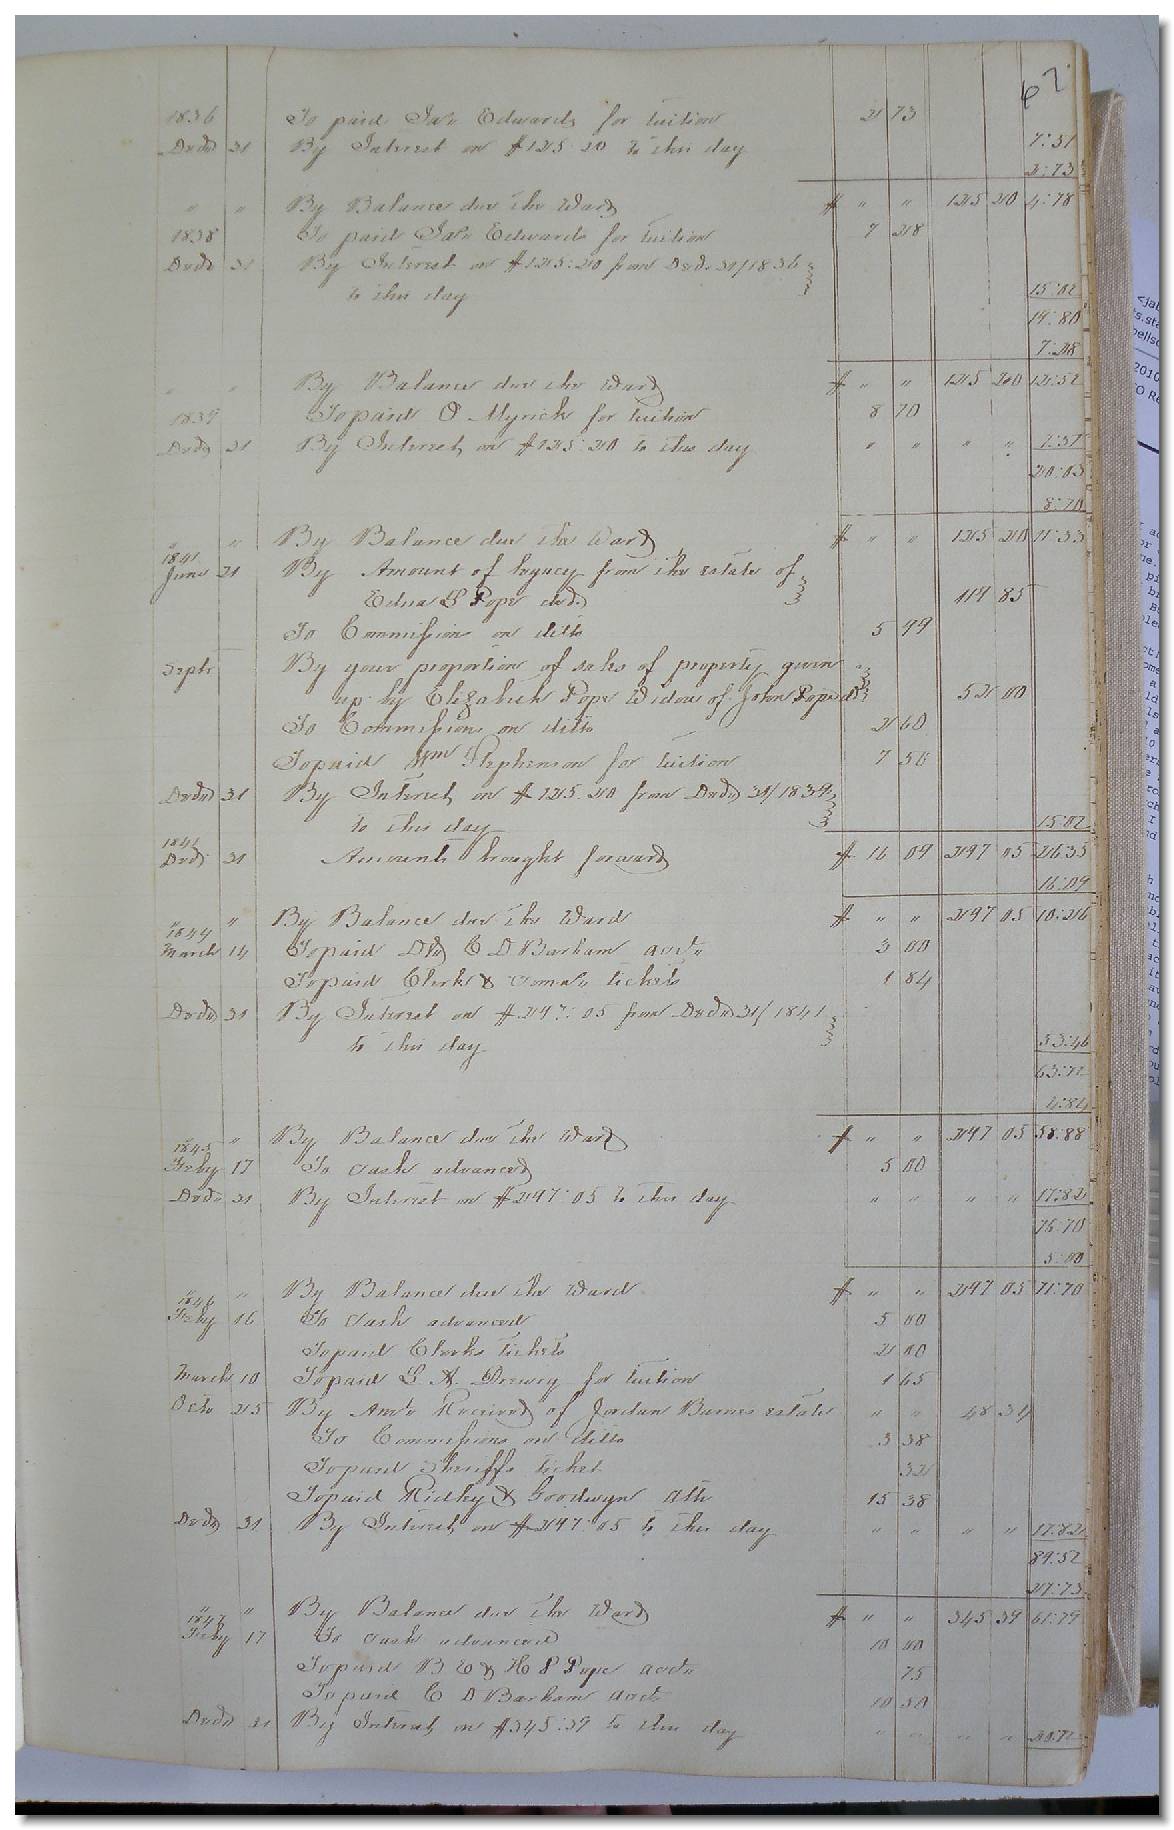 62
1836 To paid Jas Edwards for tuition 2 73
Decr 31 By Interest on $125.20 to this day 7:51
2:73
" " By Balance due the Ward $ " " 125 20 4:78
1838 To paid Jas Edwards for tuition 7 28
Decr 31 By Interest on $125:20 from Decr 31/1836
to this day 15:02
19:80
7:28
" " By Balance due the Ward $ " " 125 20 12:52
1839 To paid O Myrick for tuition 8 70
Decr 31 By Interest on $125:20 to this day " " " " 7:51
20:03
8:70
" " By Balance due the Ward $ " " 125 20 11:33
1841
June 21 By Amount of legacy from the estate of
Edna S Pope decd 119 85
To Commission on ditto 5 99
Septr By your proportion of sales of property given
up by Elizabeth Pope Widow of John Pope decd 52 00
To Commissions on ditto 2 60
To paid Wm Stephenson for tuition 7 50
Decr 31 By Interest on $125.20 from Decr 31/1839
to this day 15:02
1841
Decr 31 Amounts brought forward $ 16 09 297 05 26:35
16:09
" " By Balance due the Ward $ " " 297 05 10:26
1844
March 14 To paid Dr C D Barham acct 3 00
To paid Clerks & tickets 1 84
Decr 31 By Interest on $297:05 from Decr 31/1841
to this day 53:46
63:72
4:84
" By Balance due the Ward $ " " 297 05 58:88
1845
Feby 17 To Cash advanced 5 00
Decr 31 By Interest on $297:05 to this day " " " " 17:82
76:70
5:00
" By Balance due the Ward $ " " 297 05 71:70
1846
Feby 16 To Cash advanced 5 00
To paid Clerks tickets 2 00
March 10 To paid S A Drewry for tuition 1 65
Octo 25 By Amt Received of Jordan Barnes estate " " 48 34
To Commissions on ditto 3 38
To paid Sheriffs ticket 32
To paid Ridley & Goodwyn atts 15 38
Decr 31 By Interest on $297:05 to this day " " " " 17:82
89:52
27:73
" " By Balance due the Ward $ " " 345 39 61:79
1847
Feby 17 To Cash advanced 10 00
To paid B E & H P Pope acct 75
To paid C D Barham acct 10 50
Decr 31 By Interest on $345:39 to this day " " " " 20:72